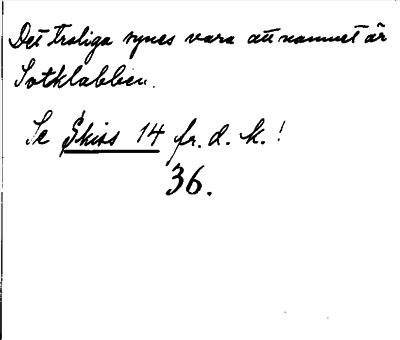 Det troliga synes vara att namnet är
Sotklabben.
Se Skiss 14 fr. d. k.!
36.